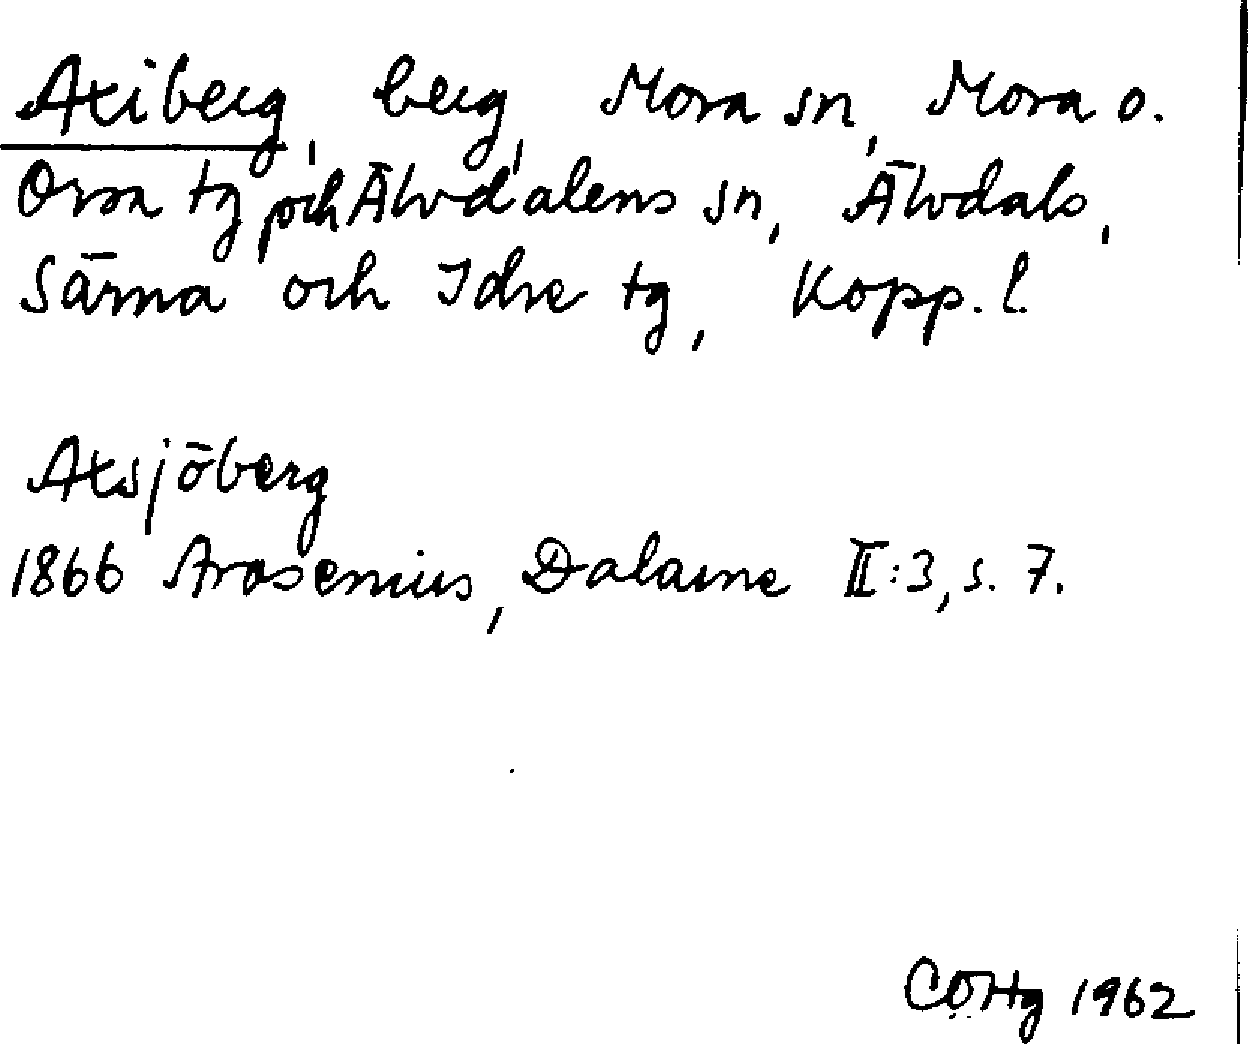 Axiberg, berg, Mora sn, Mora o.
Orsa tg och Älvdalens sn, Älvdals,
Särna och Idre tg, Kopp. l.
Axsjöberg
1866 Arosenius, Dalarne II:3, s. 7.
COHg 1962